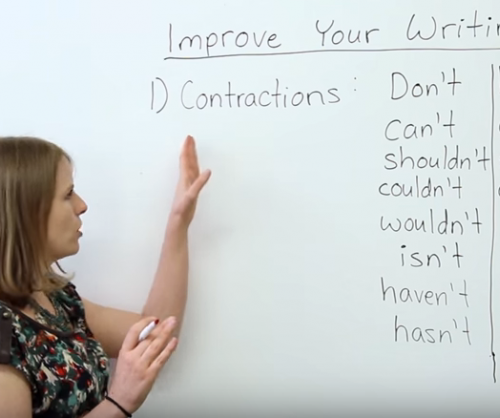 Improve Your
1) Contractions: Don't
Can't
shouldn't
couldn't
wouldn't
isn't
haven't
hasn't